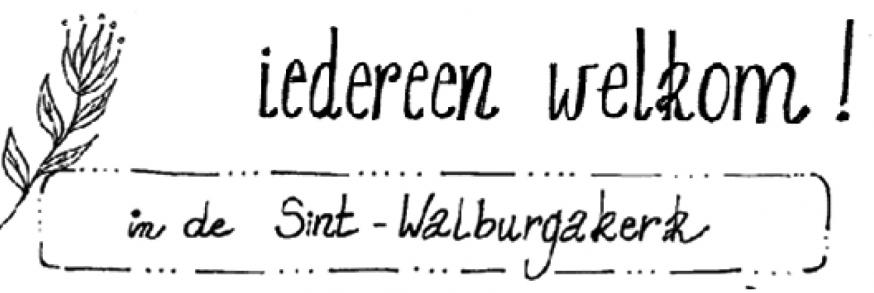 iedereen welkom!
in de Sint-Walburgakerk